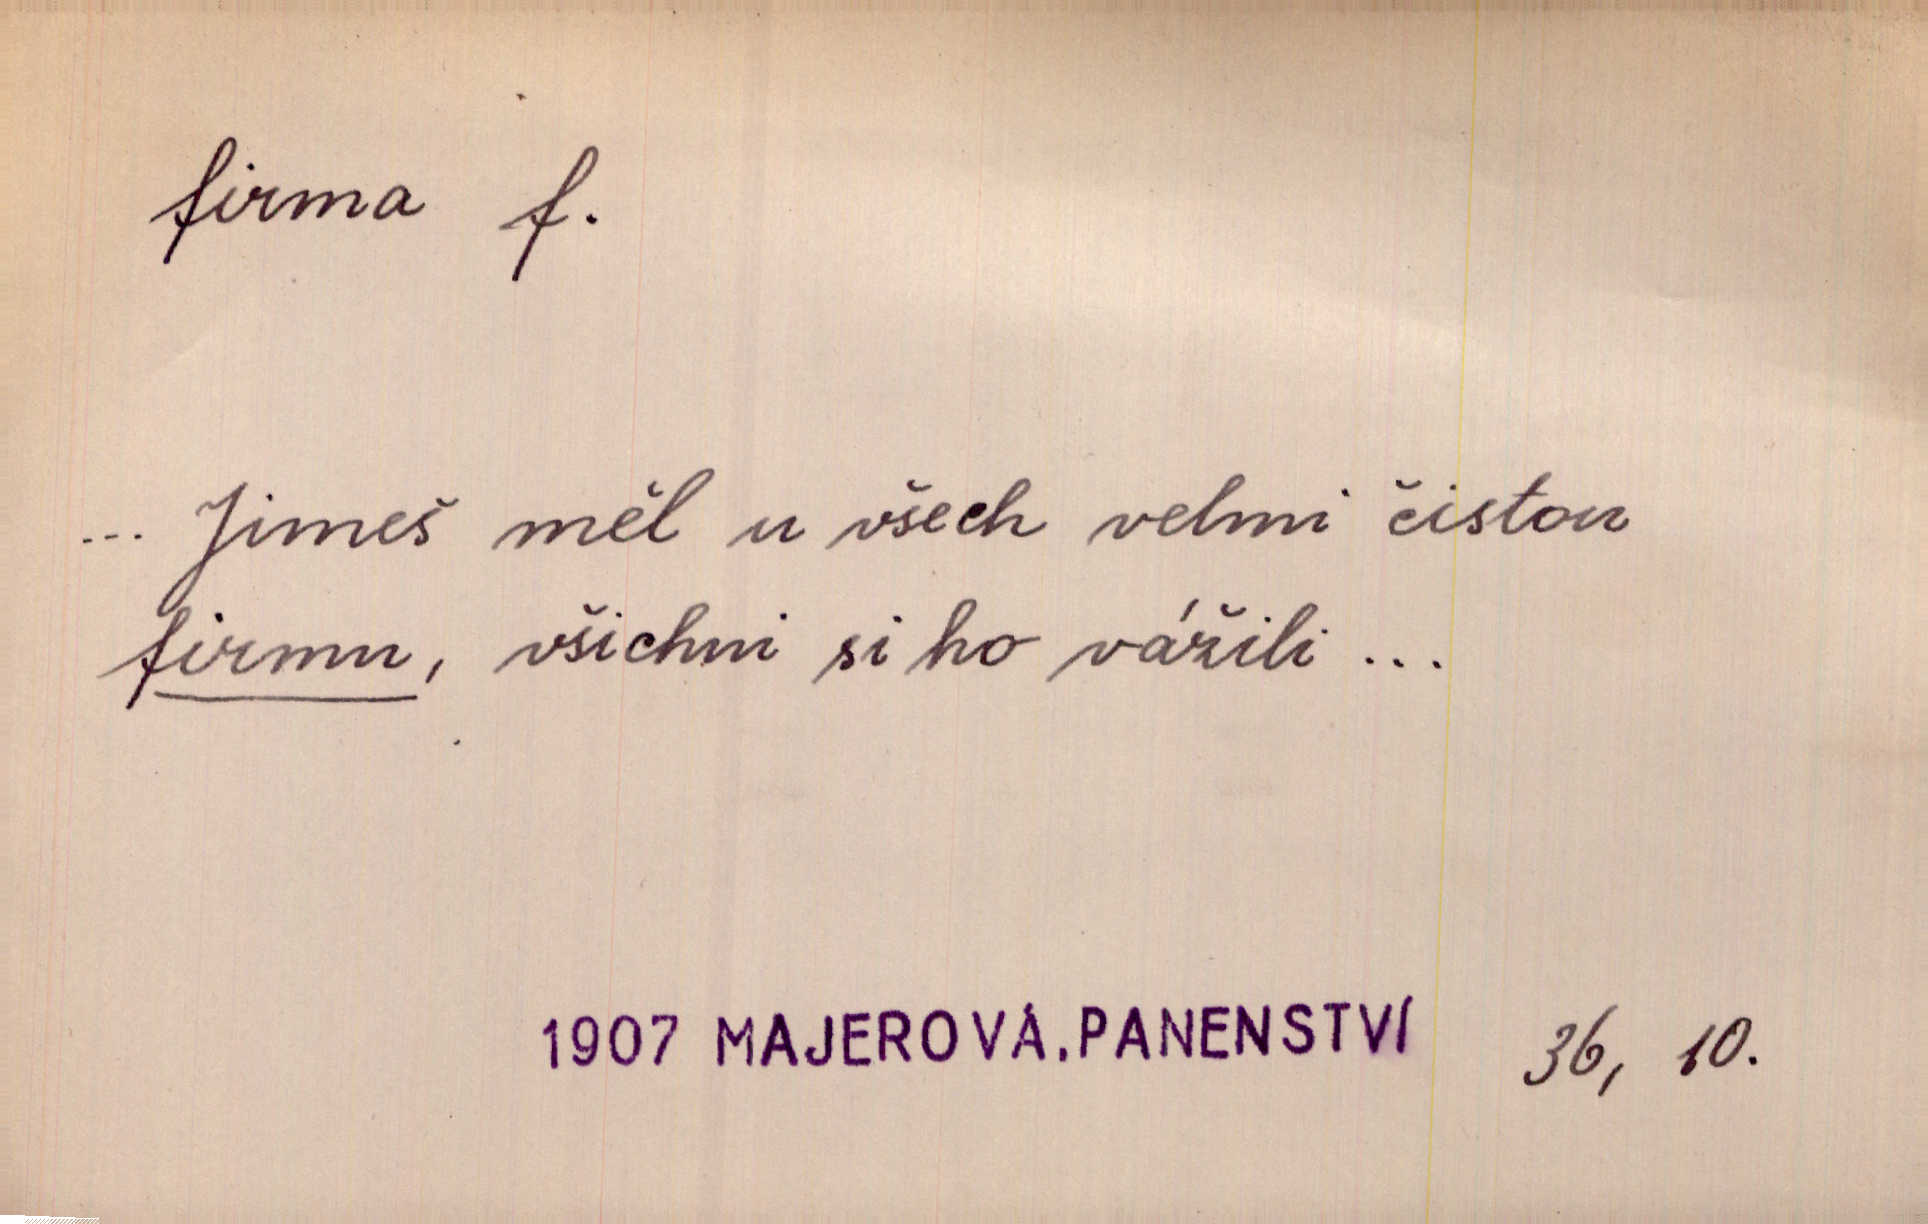 firma f.
... Jimeš měl u všech velmi čistou
firmu, všichni si ho vážili ...
1907 MAJEROVÁ.PANENSTVÍ 36, 10.